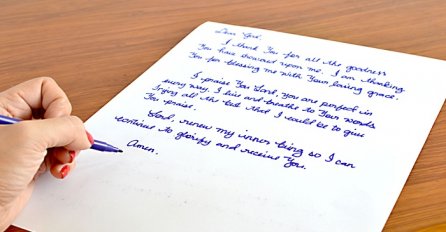 Dear God,
I thank You for all the goodness
You have showered upon me. I am thanking
You for blessing me with Your loving grace.
I praise You Lord, you are perfect in
every way, I live and breathe to Your words
trying all the best that I could be to give
You praise.
Lord, renew my inner being so I can
continue to glorify and receive You.
Amen.